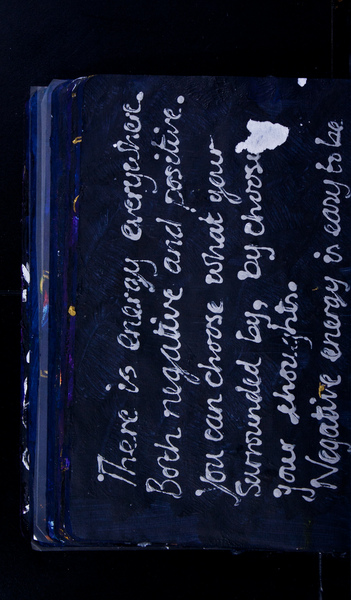 There is energy everywhere.
Both negative and positive.
You can choose what your
Surrounded by, by choose
Your thoughts.
Negative energy is easy to be